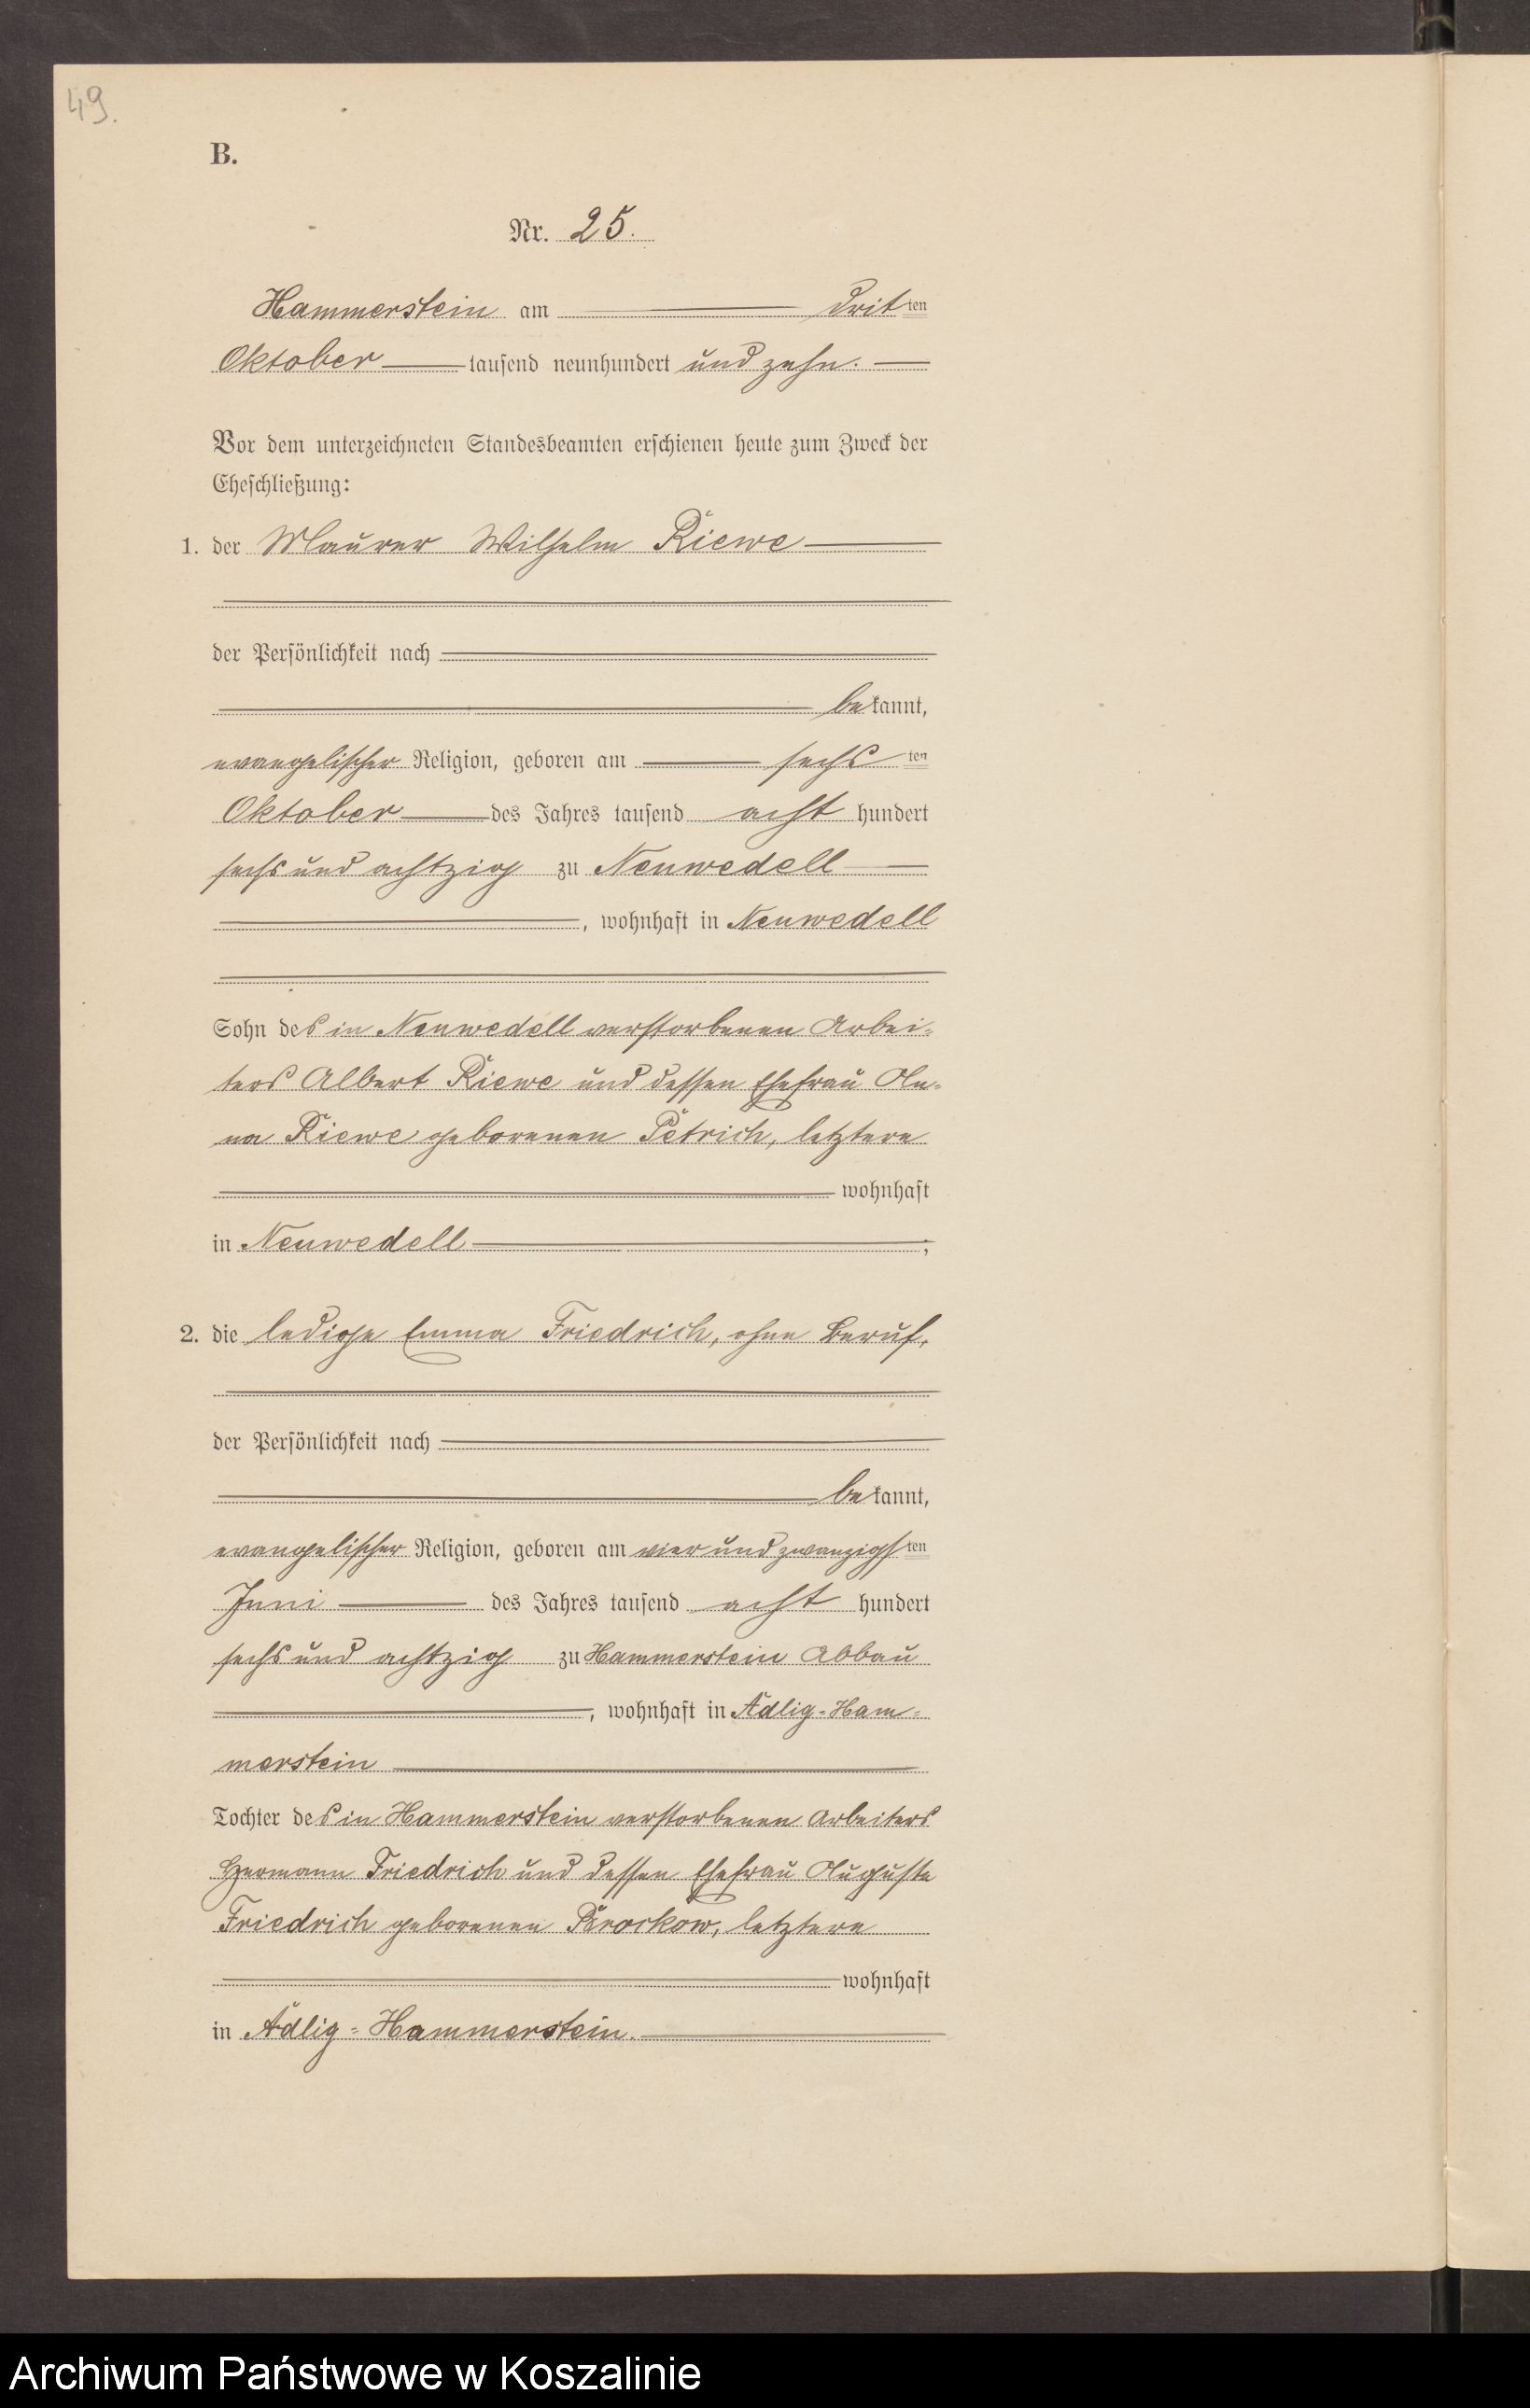 49.
B.
Nr. 25.
Hammerstein am dritten
Oktober tausend neunhundert und zehn.
Vor dem unterzeichneten Standesbeamten erschienen heute zum Zweck der
Eheschließung:
1. der Maurer Wilhelm Riewe
der Persönlichkeit nach
bekannt,
evangelischer Religion, geboren am sechsten
Oktober des Jahres tausend acht hundert
sechs und achtzig zu Neuwedell
, wohnhaft in Neuwedell
Sohn des in Neuwedell verstorbenen Arbei-
ters Albert Riewe und dessen Ehefrau An-
na Riewe geborenen Petrich, letztere
wohnhaft
in Neuwedell ;
2. die ledige Emma Friedrich, ohne Beruf,
der Persönlichkeit nach
bekannt,
evangelischer Religion, geboren am vier und zwanzigsten
Juni des Jahres tausend acht hundert
sechs und achtzig zu Hammerstein Abbau
, wohnhaft in Adlig-Ham-
merstein
Tochter des in Hammerstein verstorbenen Arbeiters
Hermann Friedrich und dessen Ehefrau Auguste
Friedrich geborenen Brockow, letztere
wohnhaft
in Adlig-Hammerstein.
Archiwum Państwowe w Koszalinie